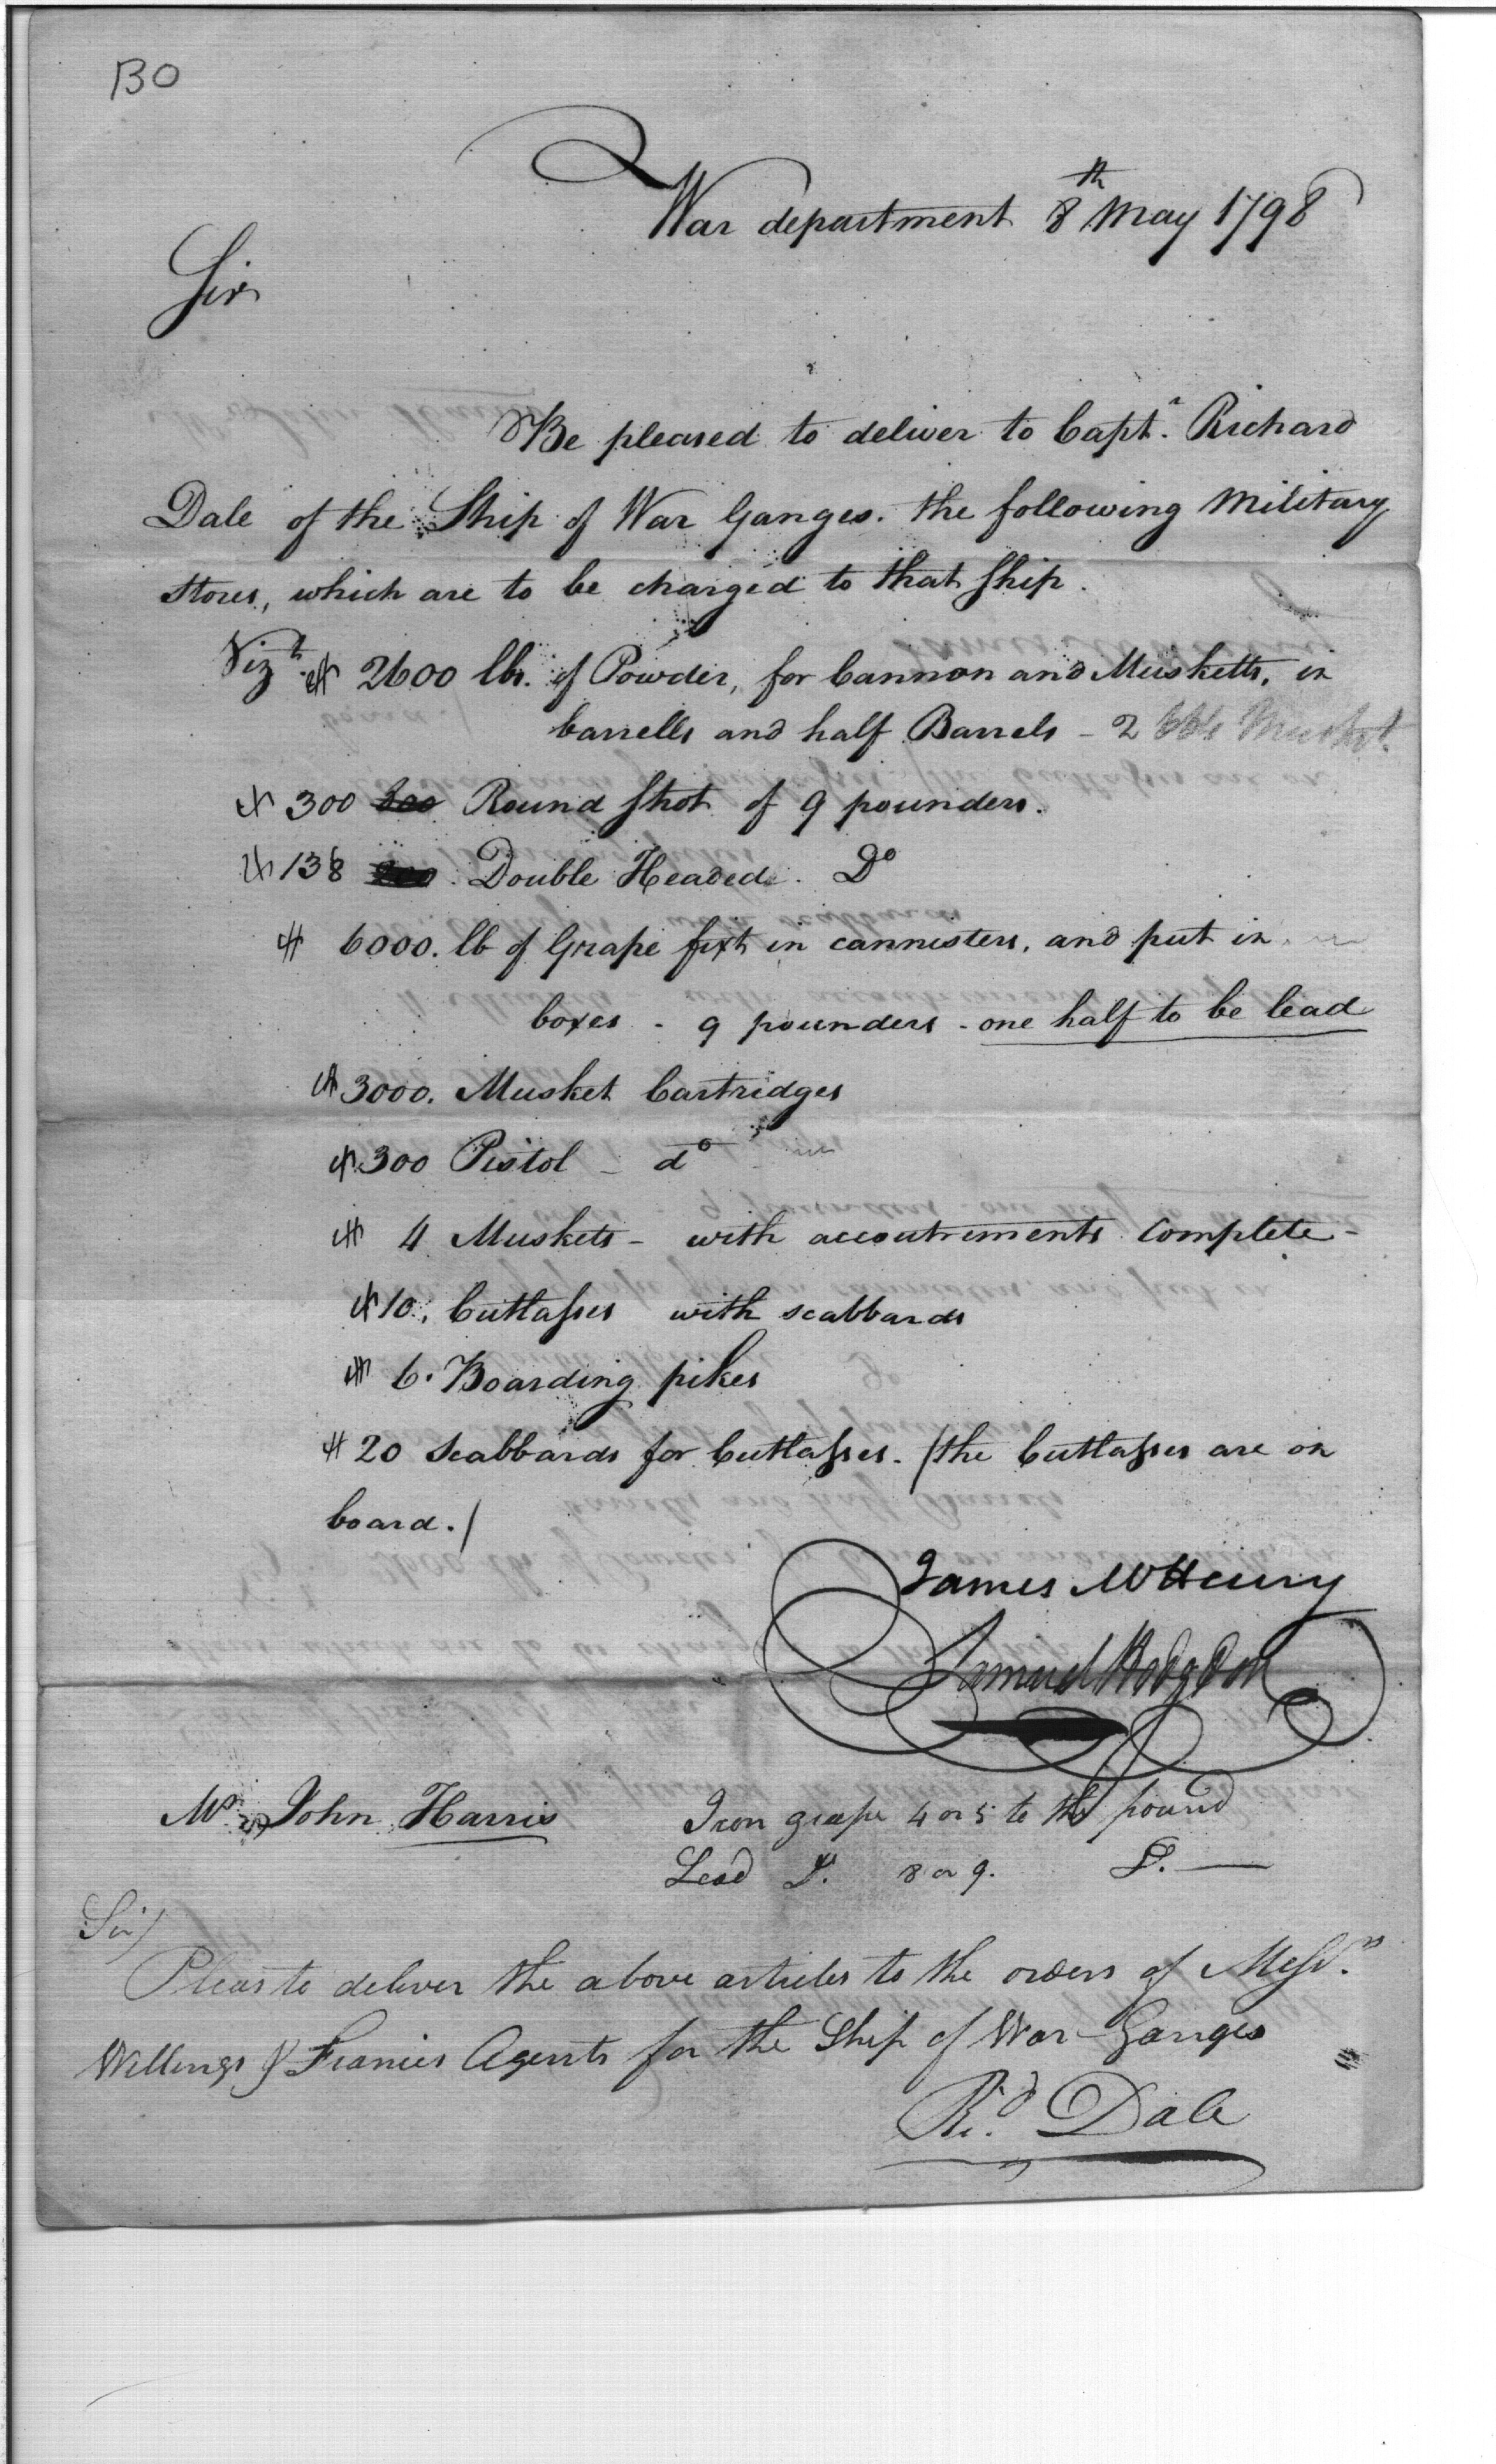 BO
War department 8th May 1798
Sir
Be pleased to deliver to Capt. Richard
Dale of the Ship of War Ganges. the following Military
stores, which are to be charged to that ship.
Vizt. 2600 lbs. of Powder, for Cannon and Musketts, in
barrells and half Barrels - 2
300 Round shot of 9 pounders.
138 Double Headed. Do
6000. lb of Grape fixt in cannisters, and put in
boxes - 9 pounders - one half to be lead
3000. Musket Cartridges
300 Pistol - do
4 Muskets - with accoutrements complete -
10. Cutlasses with scabbards
6. Boarding pikes
20 Scabbards for Cutlasses. /the Cutlasses are on
board./
James McHenry
Samuel Hodgdon
Mr. John Harris
Iron grape 4 or 5 to the pound
Lead Do. 8 or 9. Do. —
Sir/
Pleas to deliver the above articles to the orders of Messrs.
Willings & Francis Agents for the Ship of War Ganges
Rd. Dale